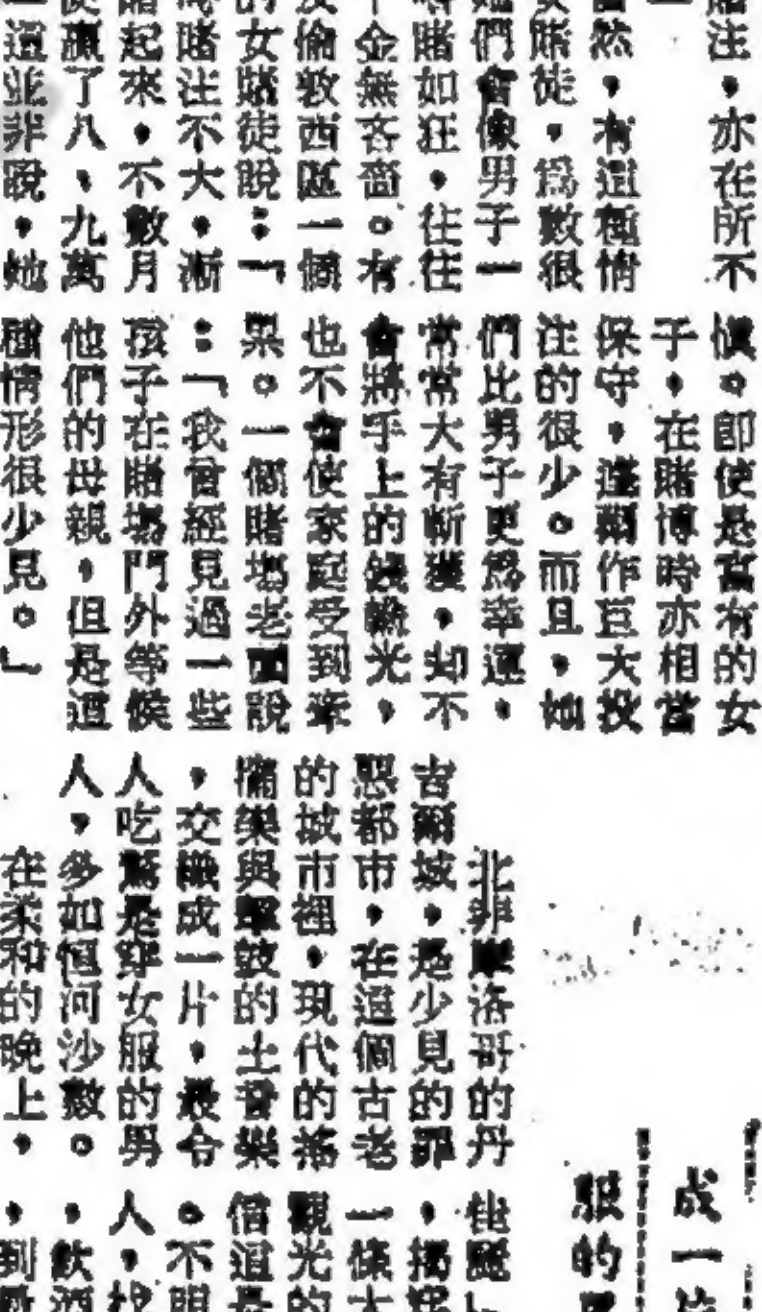 賭注，亦在所不
當然，有這種情
女賭徒，為數很
她們會像男子一
嗜賭如狂，往往
千金無吝嗇。有
倫敦西區一個
的女賭徒說：「
時賭注不大，漸
賭起來，不數月
使贏了八、九萬
這並非說，她
慎。即使是富有的女
子，在賭博時亦相當
保守，逢爾作巨大投
注的很少。而且，她
們比男子更為幸運，
常常大有斬獲，却不
會將手上的錢輸光，
也不會使家庭受到牽
累。一個賭場老闆說
：「我曾經見過一些
孩子在賭場門外等候
他們的母親，但是這
種情形很少見。」
北非摩洛哥的丹
吉爾城，是少見的罪
惡都市，在這個古老
的城市裡，現代的搖
擺樂與單鼓的土音樂
，交織成一片，最令
人吃驚是穿女服的男
人，多如恒河沙數。
在柔和的晚上，
成一
服的
觀光的
信這
。不
人，
，飲酒
，到